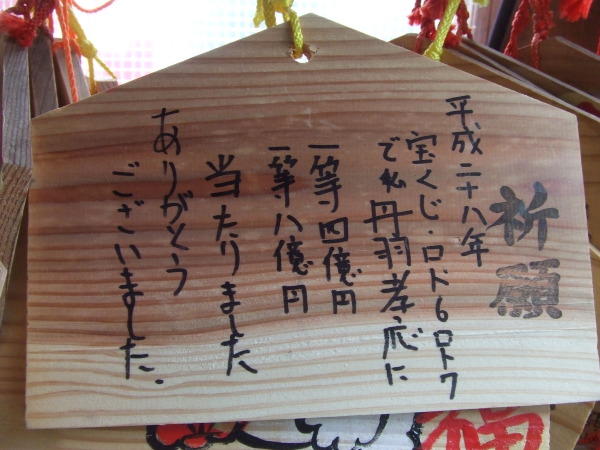 祈願
平成二十八年
宝くじ・ロト6ロト7
で私丹羽孝応に
一等四億円
一等八億円
当たりました
ありがとう
ございました.
福